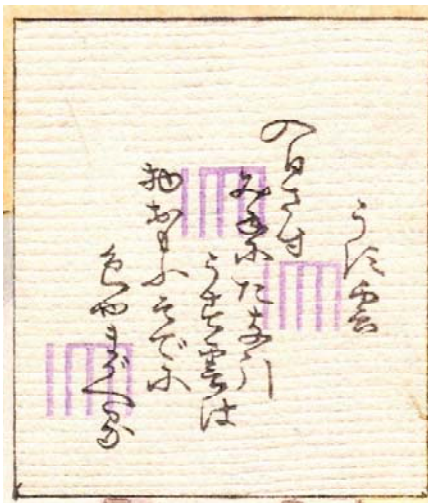 うす雲
入日さす
みねにたな引
うす雲は
物おもふそでに
色やまがへる